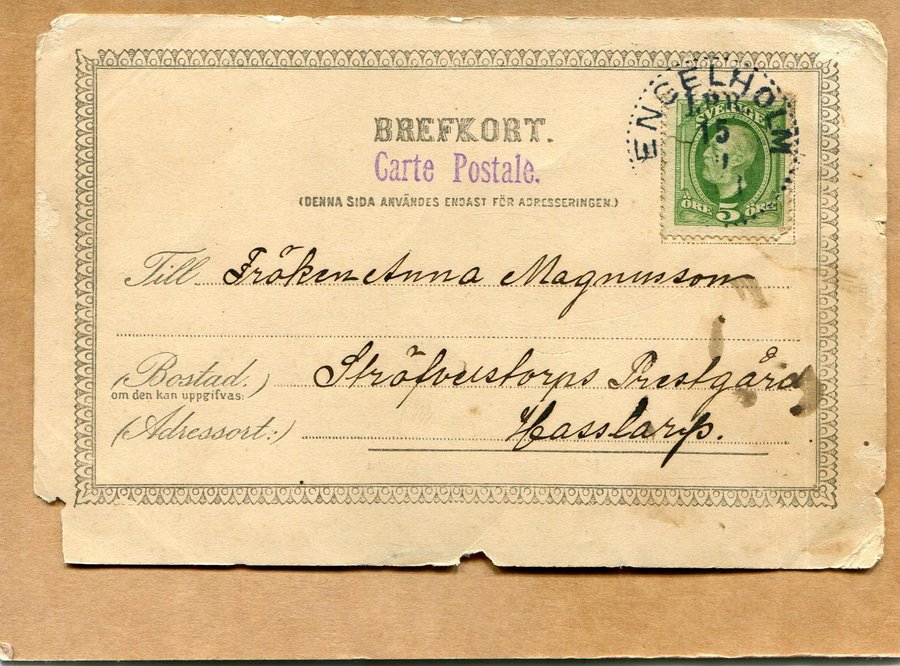 ENGELHOLM
APR
15
SVERIGE
ÖRE 5 ÖRE
BREFKORT.
Carte Postale.
(DENNA SIDA ANVÄNDES ENDAST FÖR ADRESSERINGEN.)
Till Fröken Anna Magnusson
(Bostad.) Ströfvelstorps Prestgård
om den kan uppgifvas:
(Adressort:) Hasslarp.